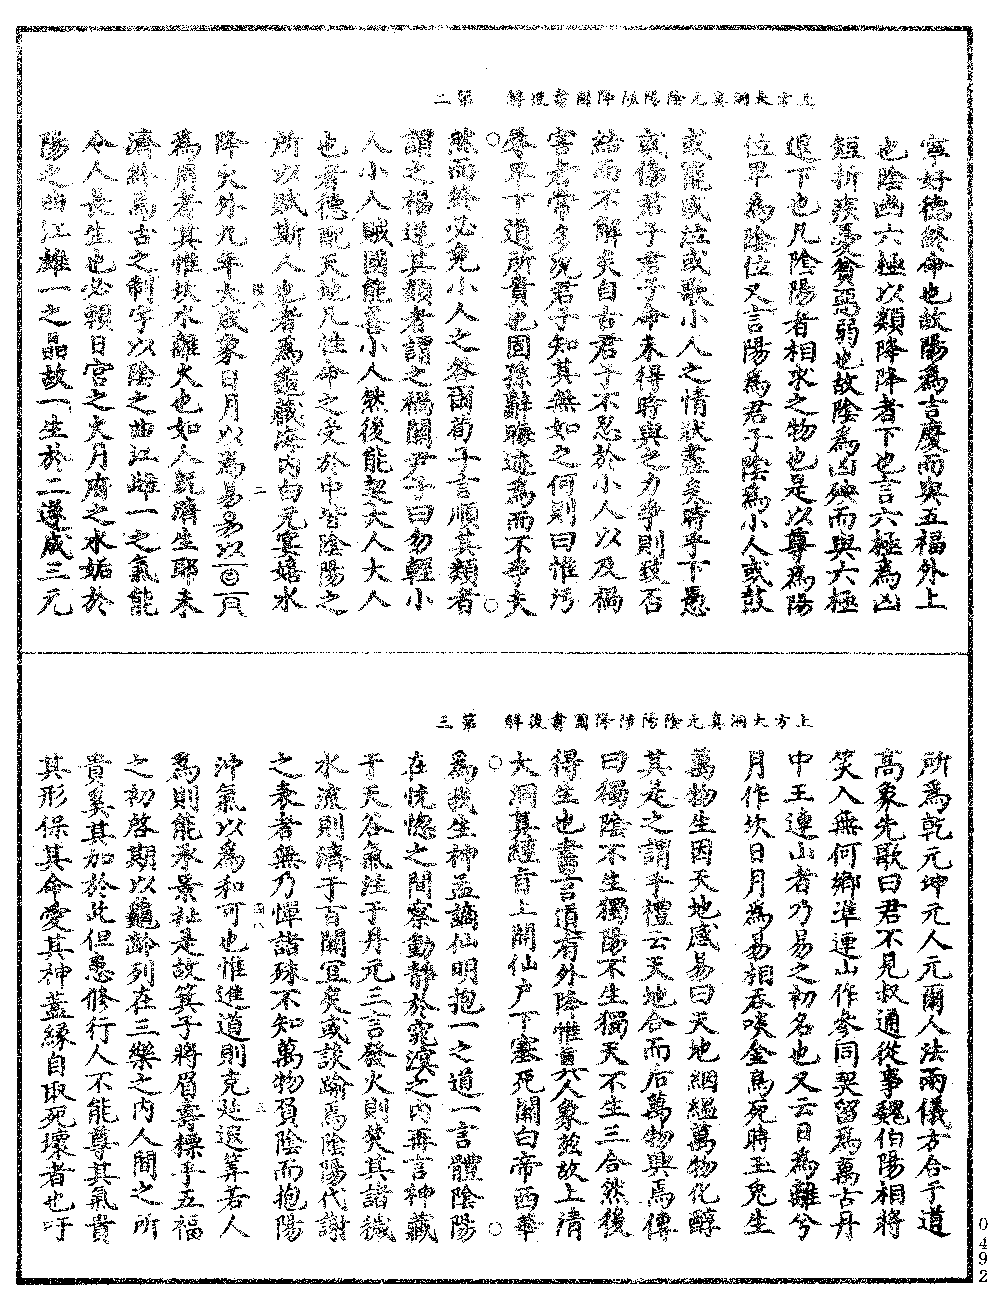 上方大洞真元陰陽陟降圖書後解　第二
寧好德終命也故陽為吉慶而與五福外上
也陰幽六極以類降降者下也言六極為凶
短折疾憂貧惡弱也故陰為凶殃而與六極
退下也凡陰陽者相求之物也是以尊為陽
位卑為陰位又言陽為君子陰為小人或鼓
或罷或泣或歌小人之情狀盡矣時乎下愚
或傷君子君子命未得時與之力爭則致否
結而不解矣自古君子不忍於小人以及禍
害者常多況君子知其無如之何則曰惟污
辱卑下道所貴也固孫辭晦迹為而不爭夫
然而終必免小人之咎爾荀子言順其類者
謂之福逆其類者謂之禍關尹子曰勿輕小
人小人賊國能善小人然後能契大人大人
也者德配天地凡性命之受於中皆陰陽之
所以賦斯人也者為蓋藏海內白元宴嬉水
降火外九年大歲象日月以為易易以
為用者其惟坎水離火也如人既濟生耶未
濟終焉古之制字以陰之曲江雌一之氣能
令人長生也必賴日宮之火月府之水姤於
陽之曲江雄一之晶故一生於二遂成三元
上方大洞真元陰陽陟降圖書後解　第三
所為乾元坤元人元爾人法兩儀方合于道
高象先歌曰君不見叔通從事魏伯陽相將
笑入無何鄉準連山作參同契留為萬古丹
中王連山者乃易之初名也又云日為離兮
月作坎日月為易相吞啖金烏死時玉兔生
萬物生因天地感易曰天地絪縕萬物化醇
其是之謂乎禮云天地合而后萬物興焉傳
曰獨陰不生獨陽不生獨天不生三合然後
得生也書言道有外降惟真人象茲故上清
大洞真經旨上開仙戶下塞死關白帝西華
為機生神益謫仙明抱一之道一言體陰陽
在恍惚之間察動靜於窈溟之內再言神藏
于天谷氣注于丹元三言發火則焚其諸穢
水流則濟于百關宜矣或談踰焉陰陽代謝
之表者無乃憚諸殊不知萬物負陰而抱陽
沖氣以為和可也惟進道則克延退筭若人
為則能永景祉是故箕子將眉壽標乎五福
之初啓期以龜齡列在三樂之內人間之所
貴奚其加於此但愚修行人不能尊其氣貴
其形保其命愛其神蓋緣自取死壞者也吁
0492